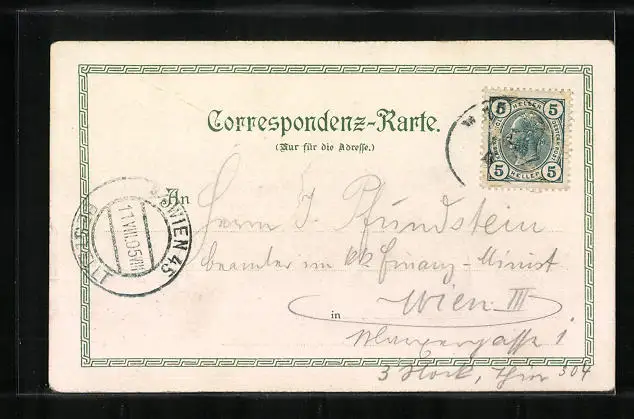 Correspondenz-Karte.
(Nur für die Adresse.)
5 HELLER 5
5 HELLER 5
An
Herrn J. Pfundstein
beamter im kk Finanz-Minist
in Wien III
1
3 Stock, Thür 304
WIEN 45
11.VIII.05
BESTELLT